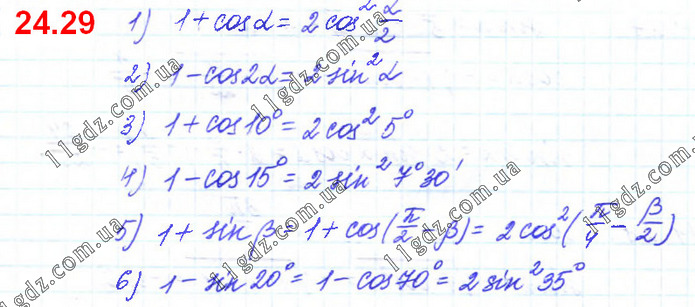 24.29
1) 1 + cos α = 2 cos² α/2
2) 1 - cos 2α = 2 sin² α
3) 1 + cos 10° = 2 cos² 5°
4) 1 - cos 15° = 2 sin² 7° 30'
5) 1 + sin β = 1 + cos (π/2 - β) = 2 cos² (π/4 - β/2)
6) 1 - sin 20° = 1 - cos 70° = 2 sin² 35°
11gdz.com.ua
11gdz.com.ua
11gdz.com.ua
11gdz.com.ua